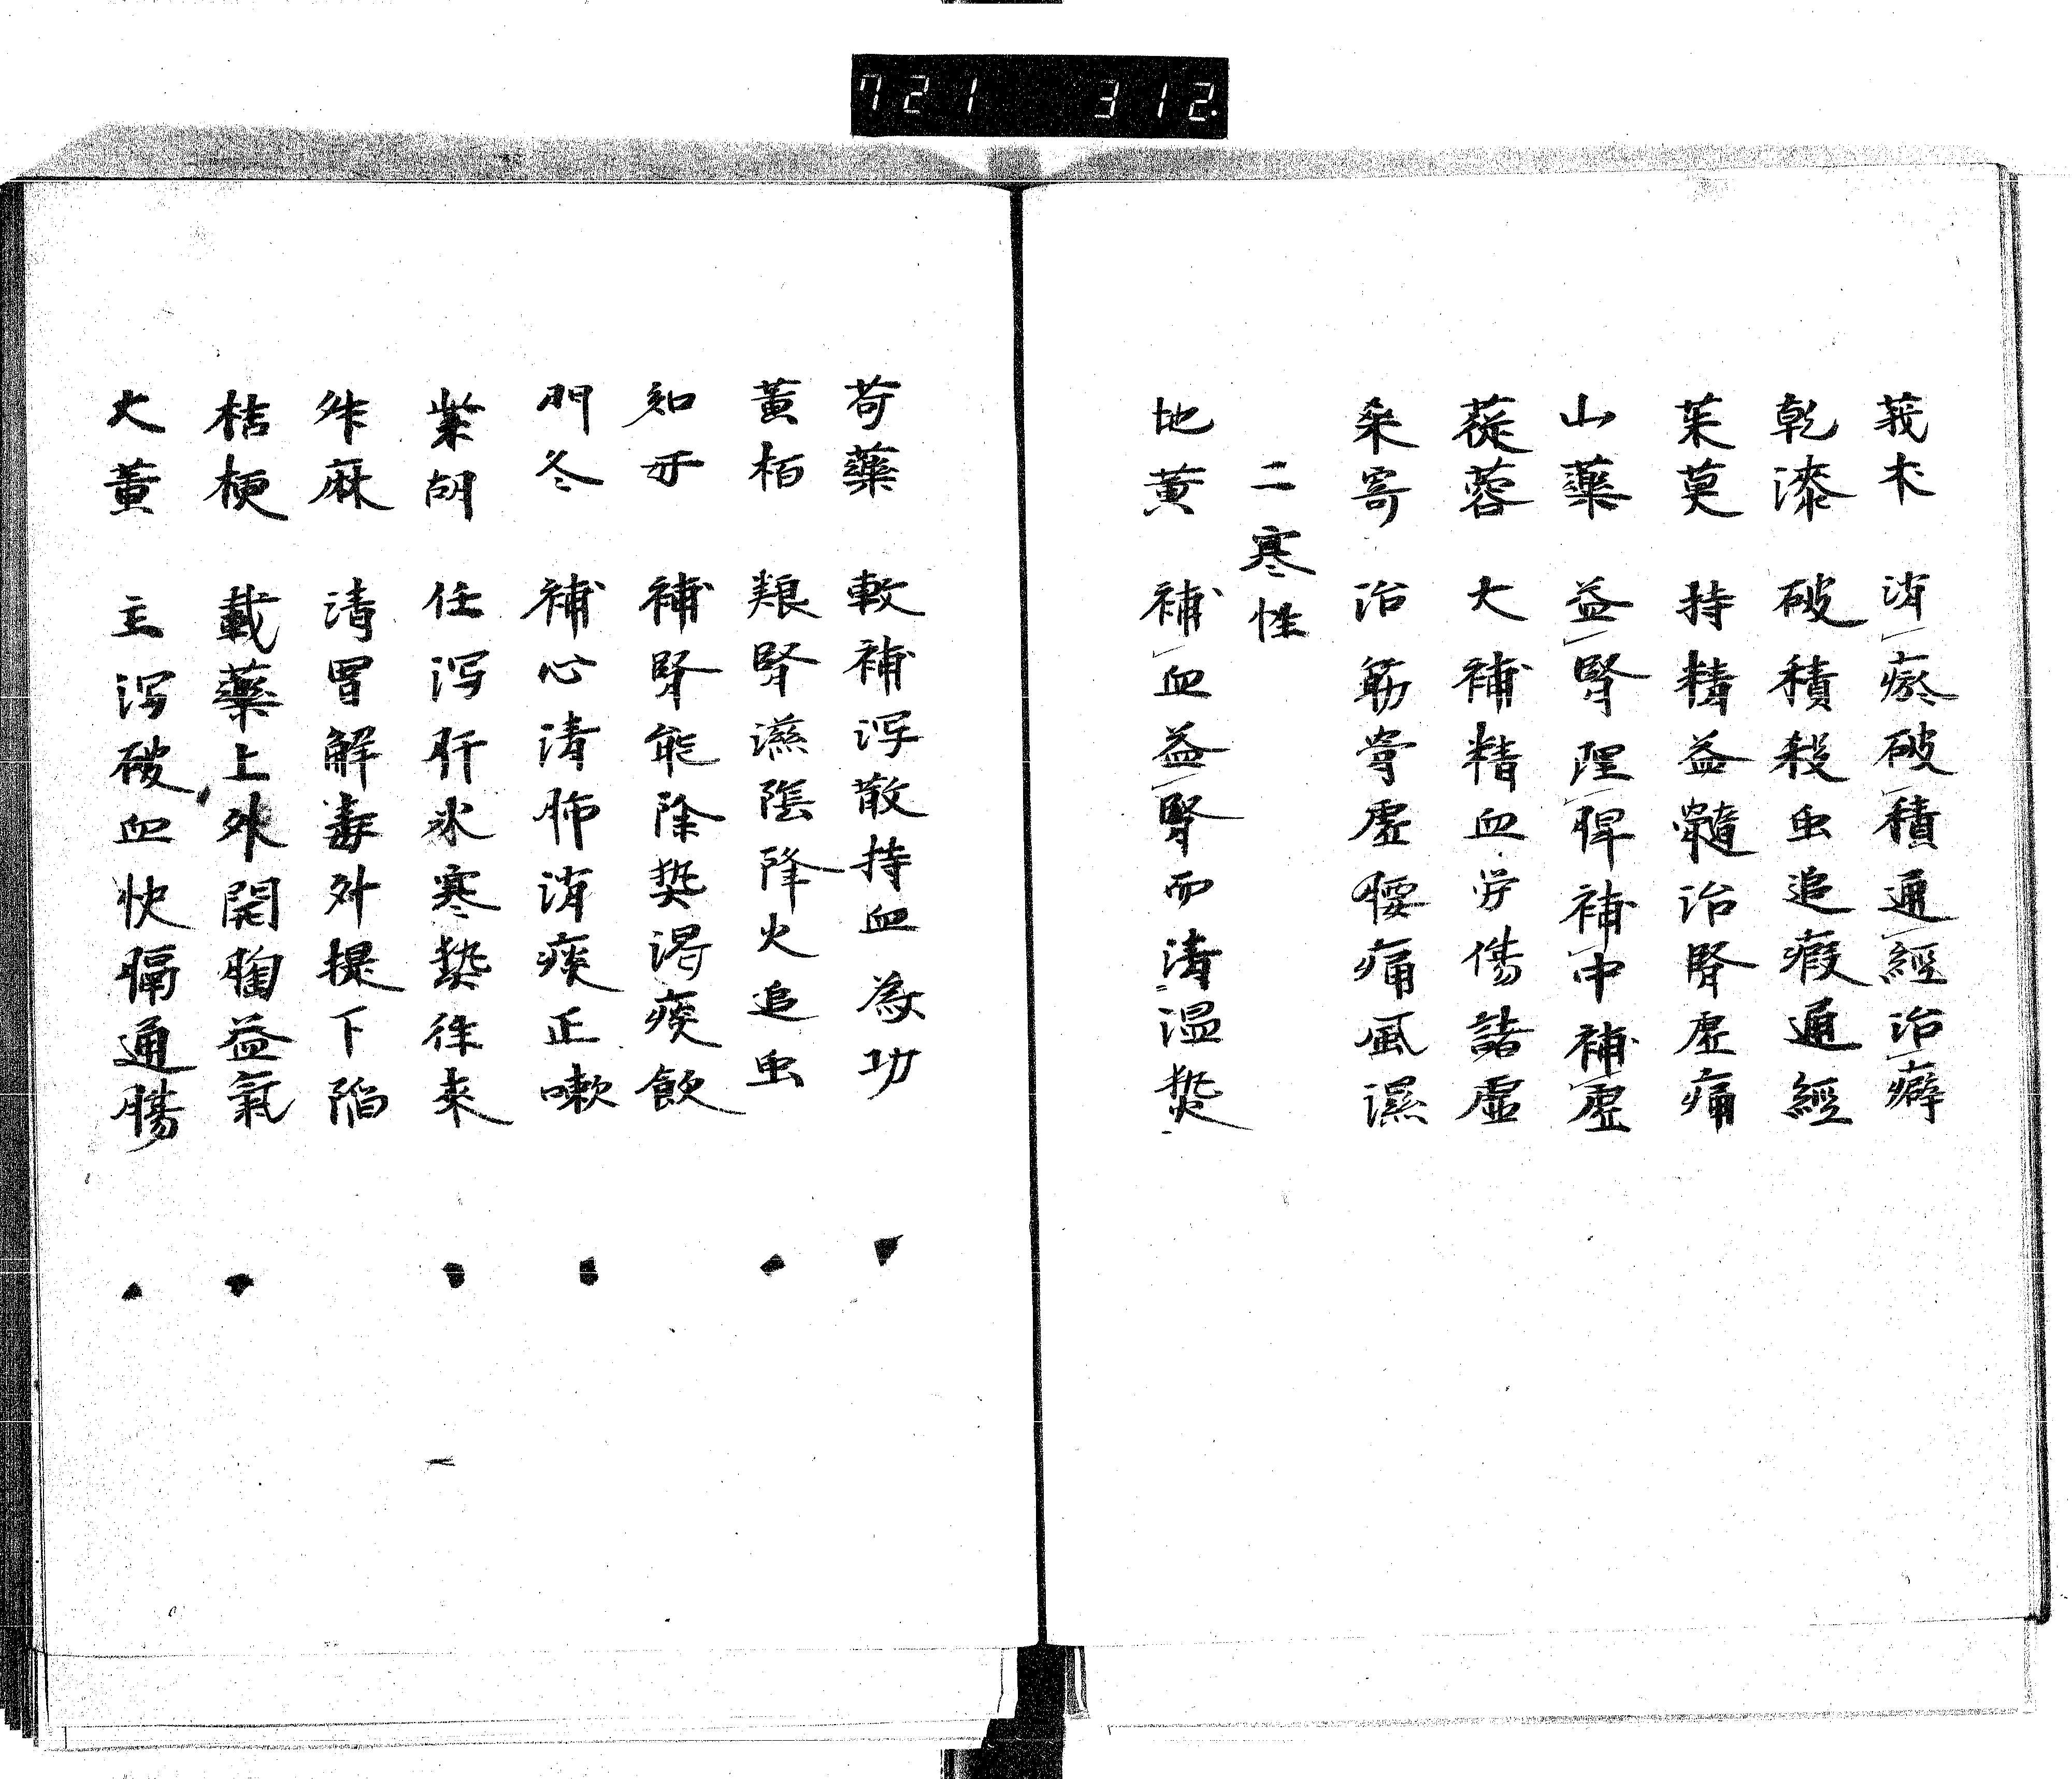 721 312.
莪朮 消瘀破積通經治癖
乾漆 破積殺虫追瘕通經
茱萸 持精益髓治腎虛痛
山藥 益腎理脾補中補虛
蓯蓉 大補精血労傷諸虛
桒寄 治筋骨虛腰痛風濕
二寒性
地黃 補血益腎而清温𤍠
芍藥 較補泻散持血為功
黃栢 艱腎滋陰降火追虫
知母 補腎能除𤍠渴痰飲
門冬 補心清肺消痰正嗽
柴胡 任泻肝氷寒𤍠徃来
升麻 清胃解毒升提下陷
桔梗 載藥上外開胸益氣
大黃 主泻破血快膈通腸